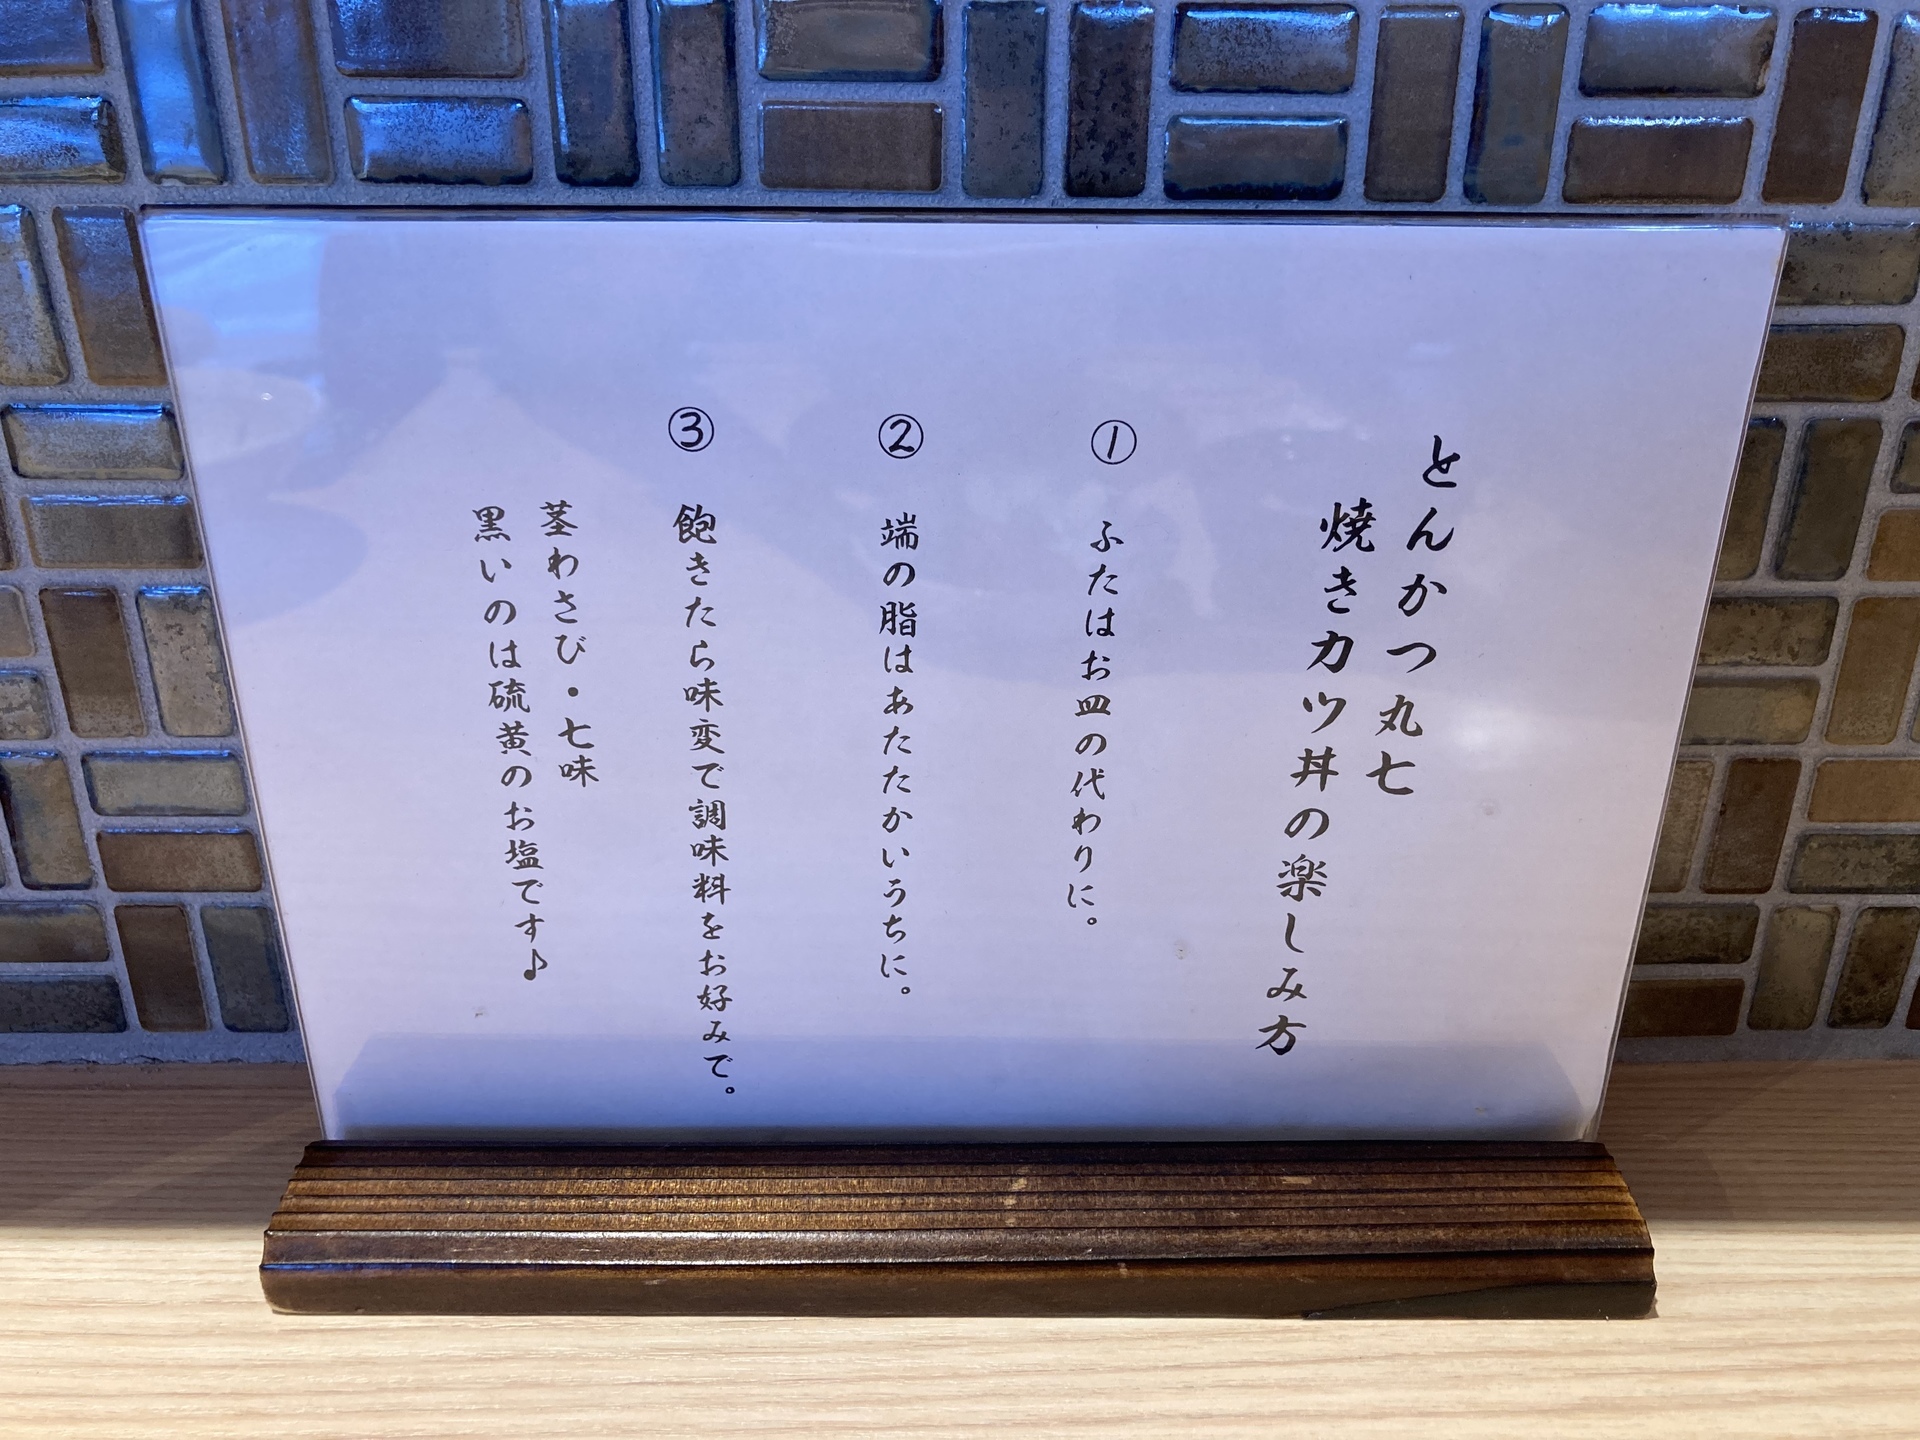 とんかつ丸七
焼きカツ丼の楽しみ方
① ふたはお皿の代わりに。
② 端の脂はあたたかいうちに。
③ 飽きたら味変で調味料をお好みで。
茎わさび・七味
黒いのは硫黄のお塩です♪